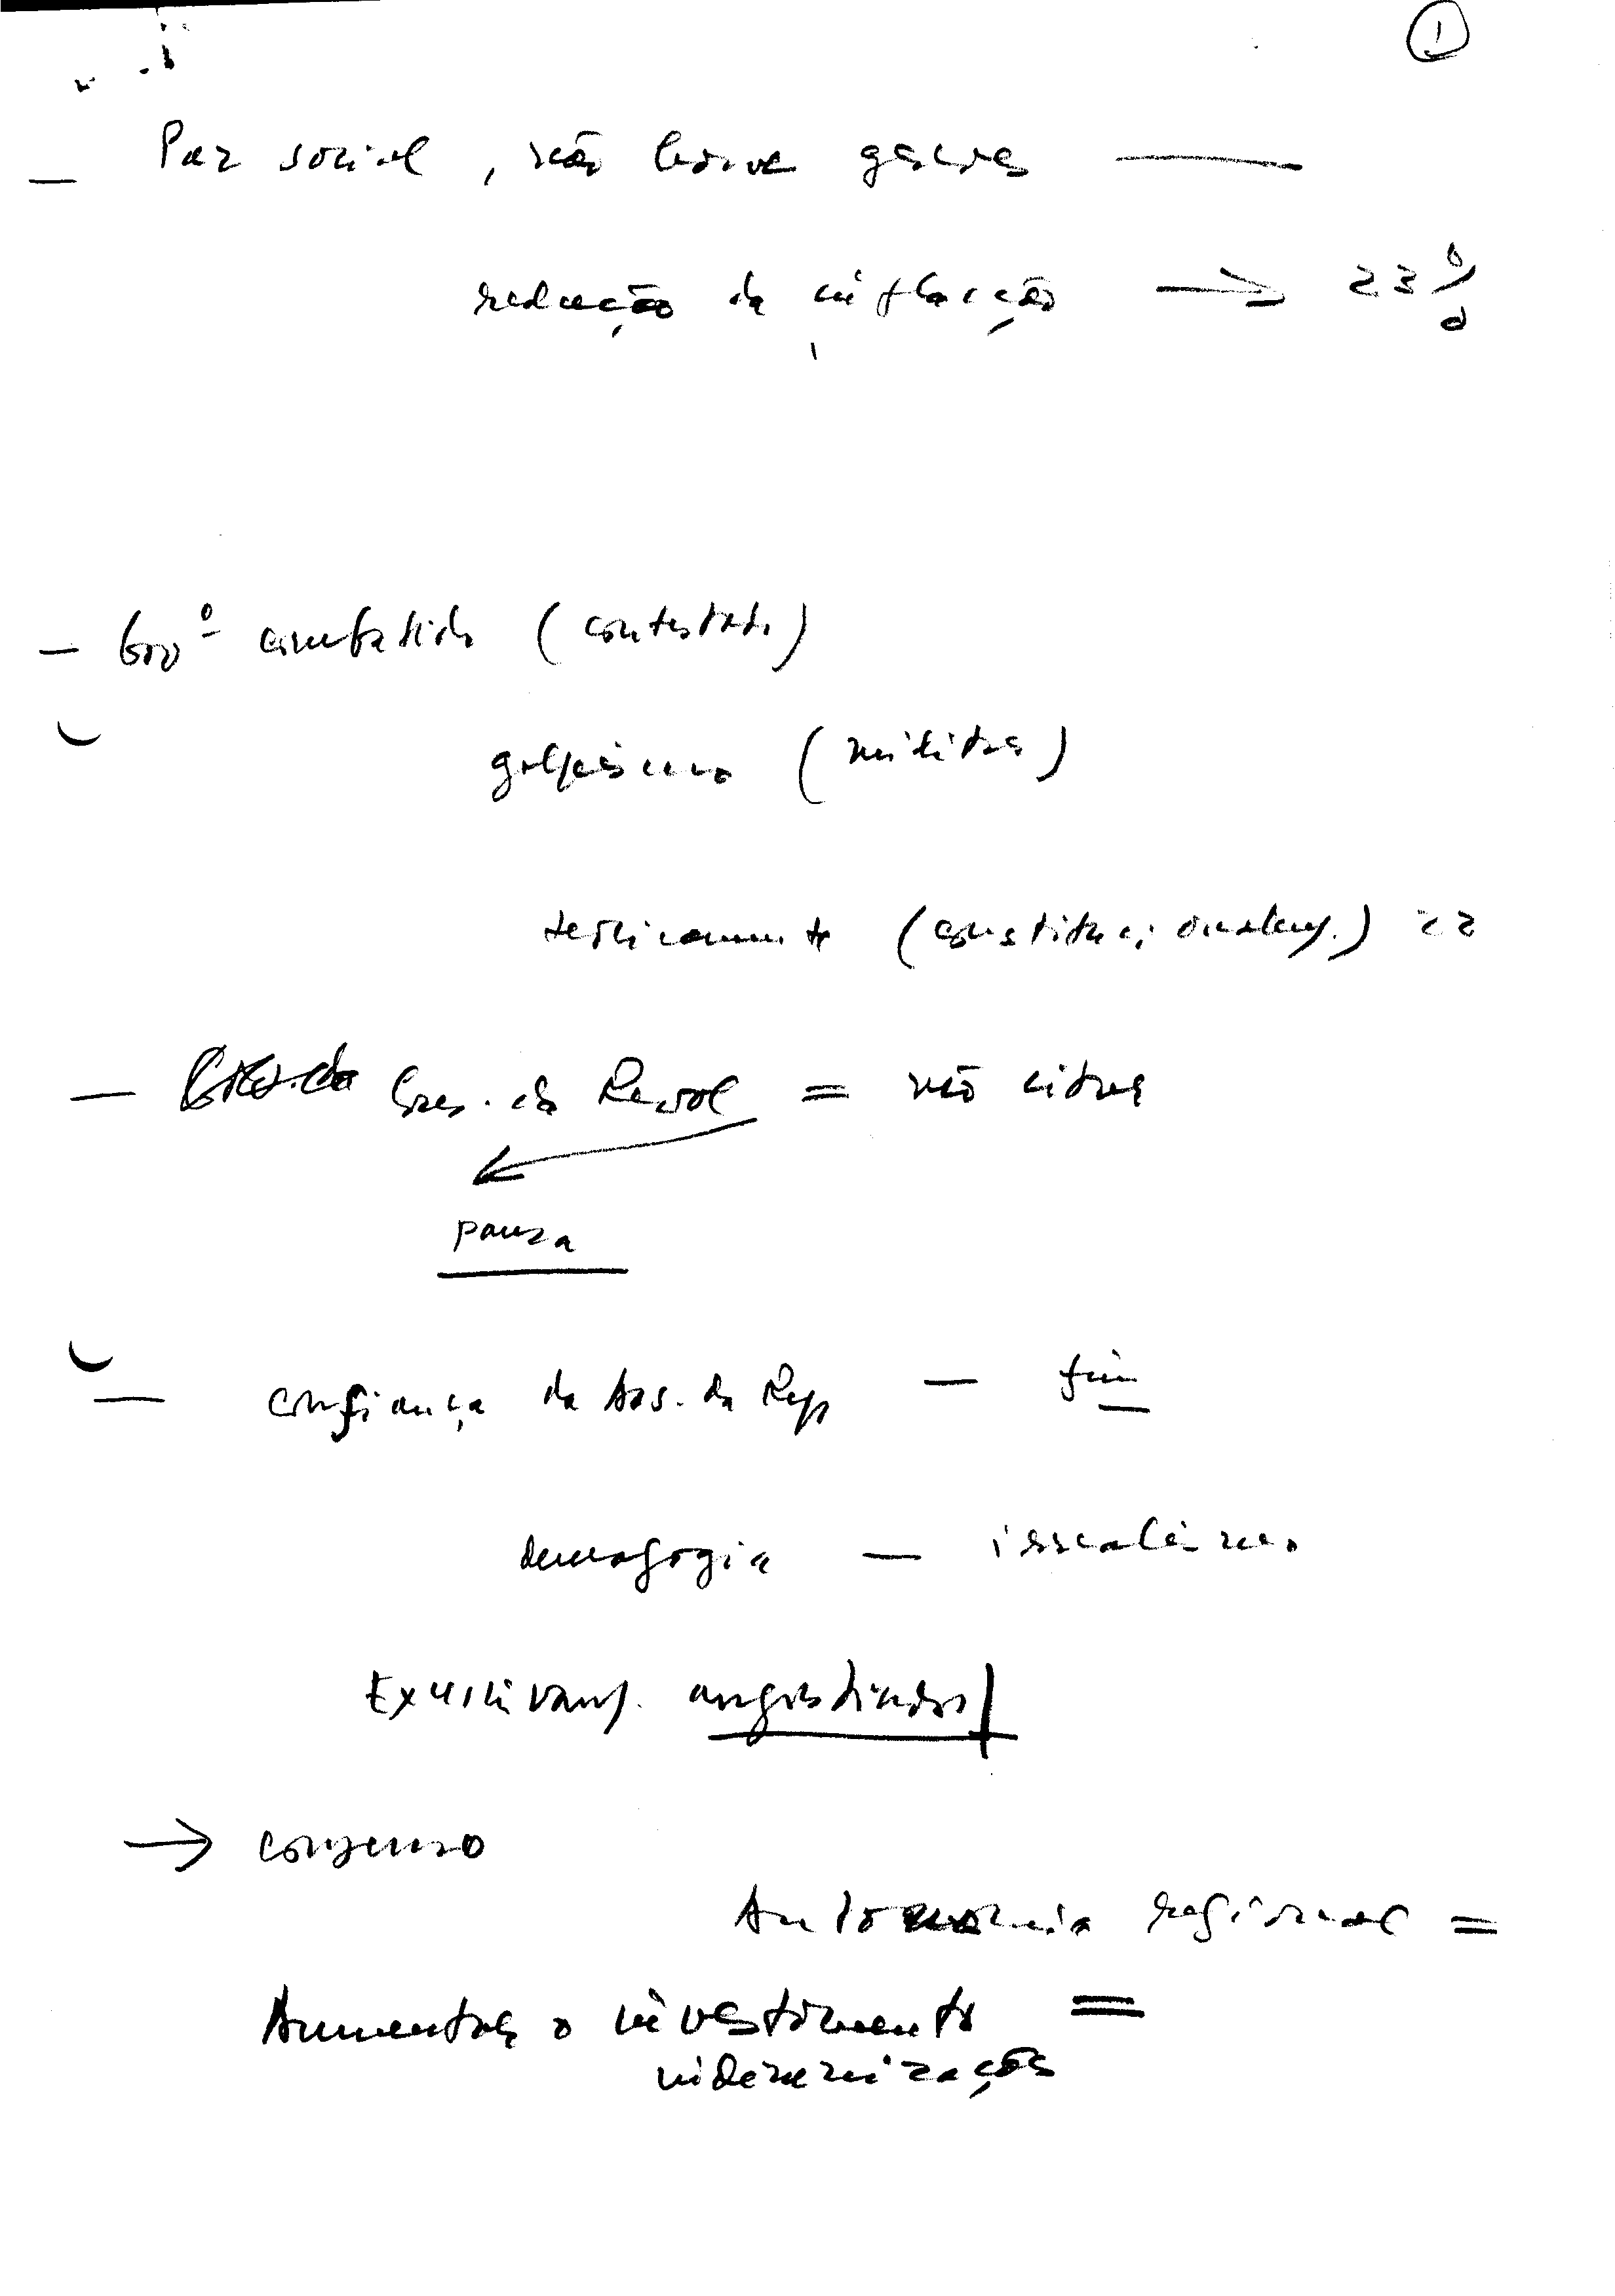 1
— Paz social, não houve greves —
redução da inflacção → 23%
— Govº combatido (contestado)
golpismo (militar)
teoricamente (constitucionalmt.)
— Cons. da Revol = não
pausa
— confiança da Ass. da Rep — fim
demagogia — irrealismo
Exclusivamt. angustiados
→ consenso
Autonomia regional =
Aumentar o investimento =
modernização